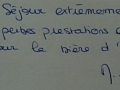 Séjour extrêmeme
perbes prestations
our la bière d'